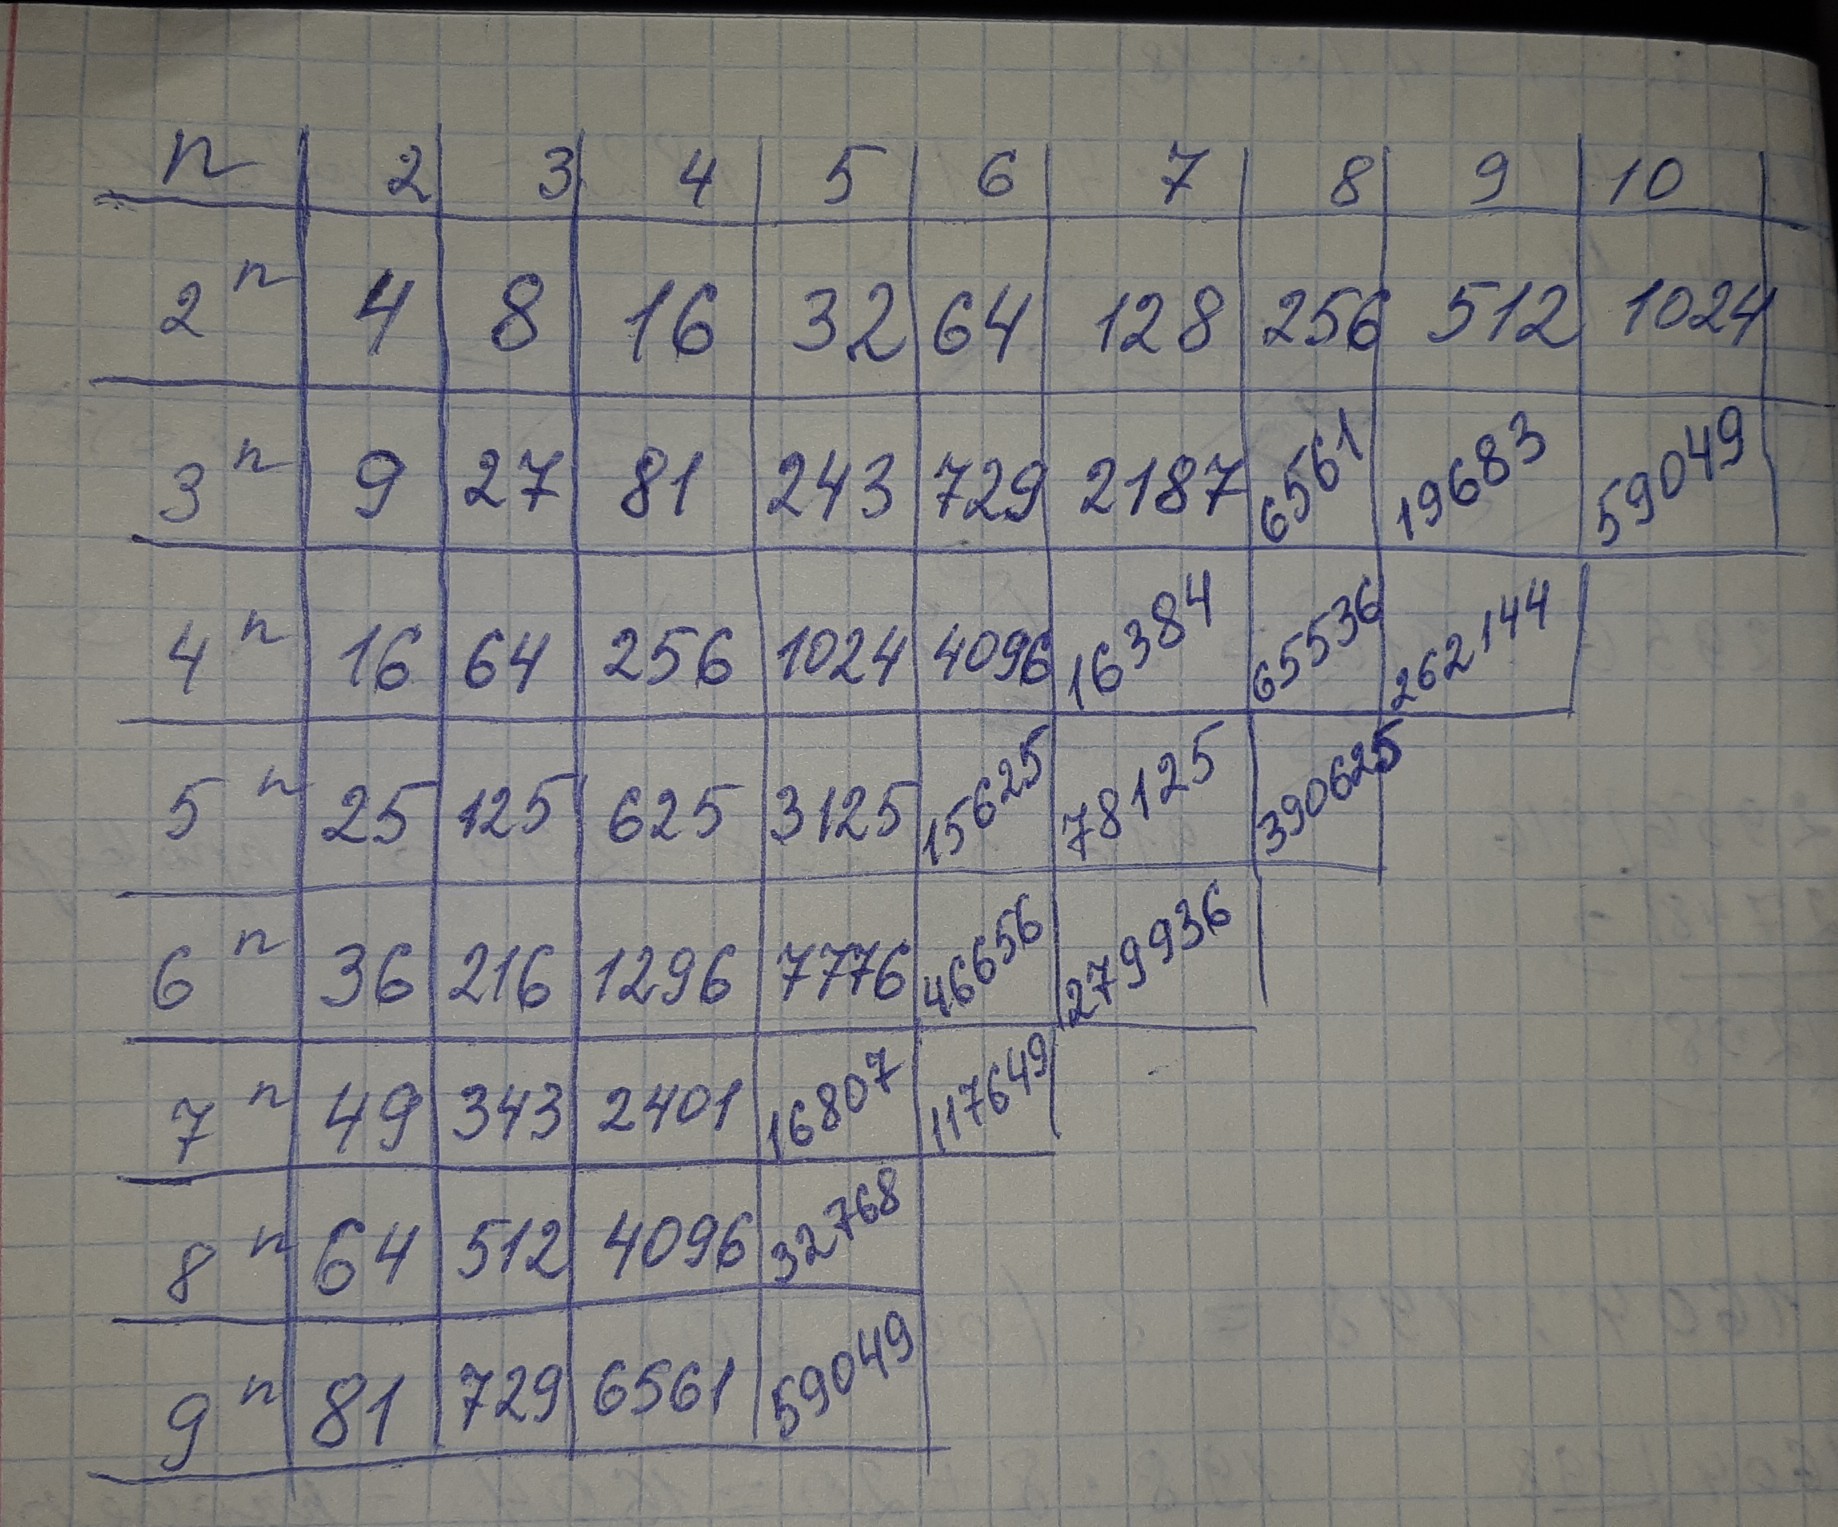 n 2 3 4 5 6 7 8 9 10
2ⁿ 4 8 16 32 64 128 256 512 1024
3ⁿ 9 27 81 243 729 2187 6561 19683 59049
4ⁿ 16 64 256 1024 4096 16384 65536 262144
5ⁿ 25 125 625 3125 15625 78125 390625
6ⁿ 36 216 1296 7776 46656 279936
7ⁿ 49 343 2401 16807 117649
8ⁿ 64 512 4096 32768
9ⁿ 81 729 6561 59049